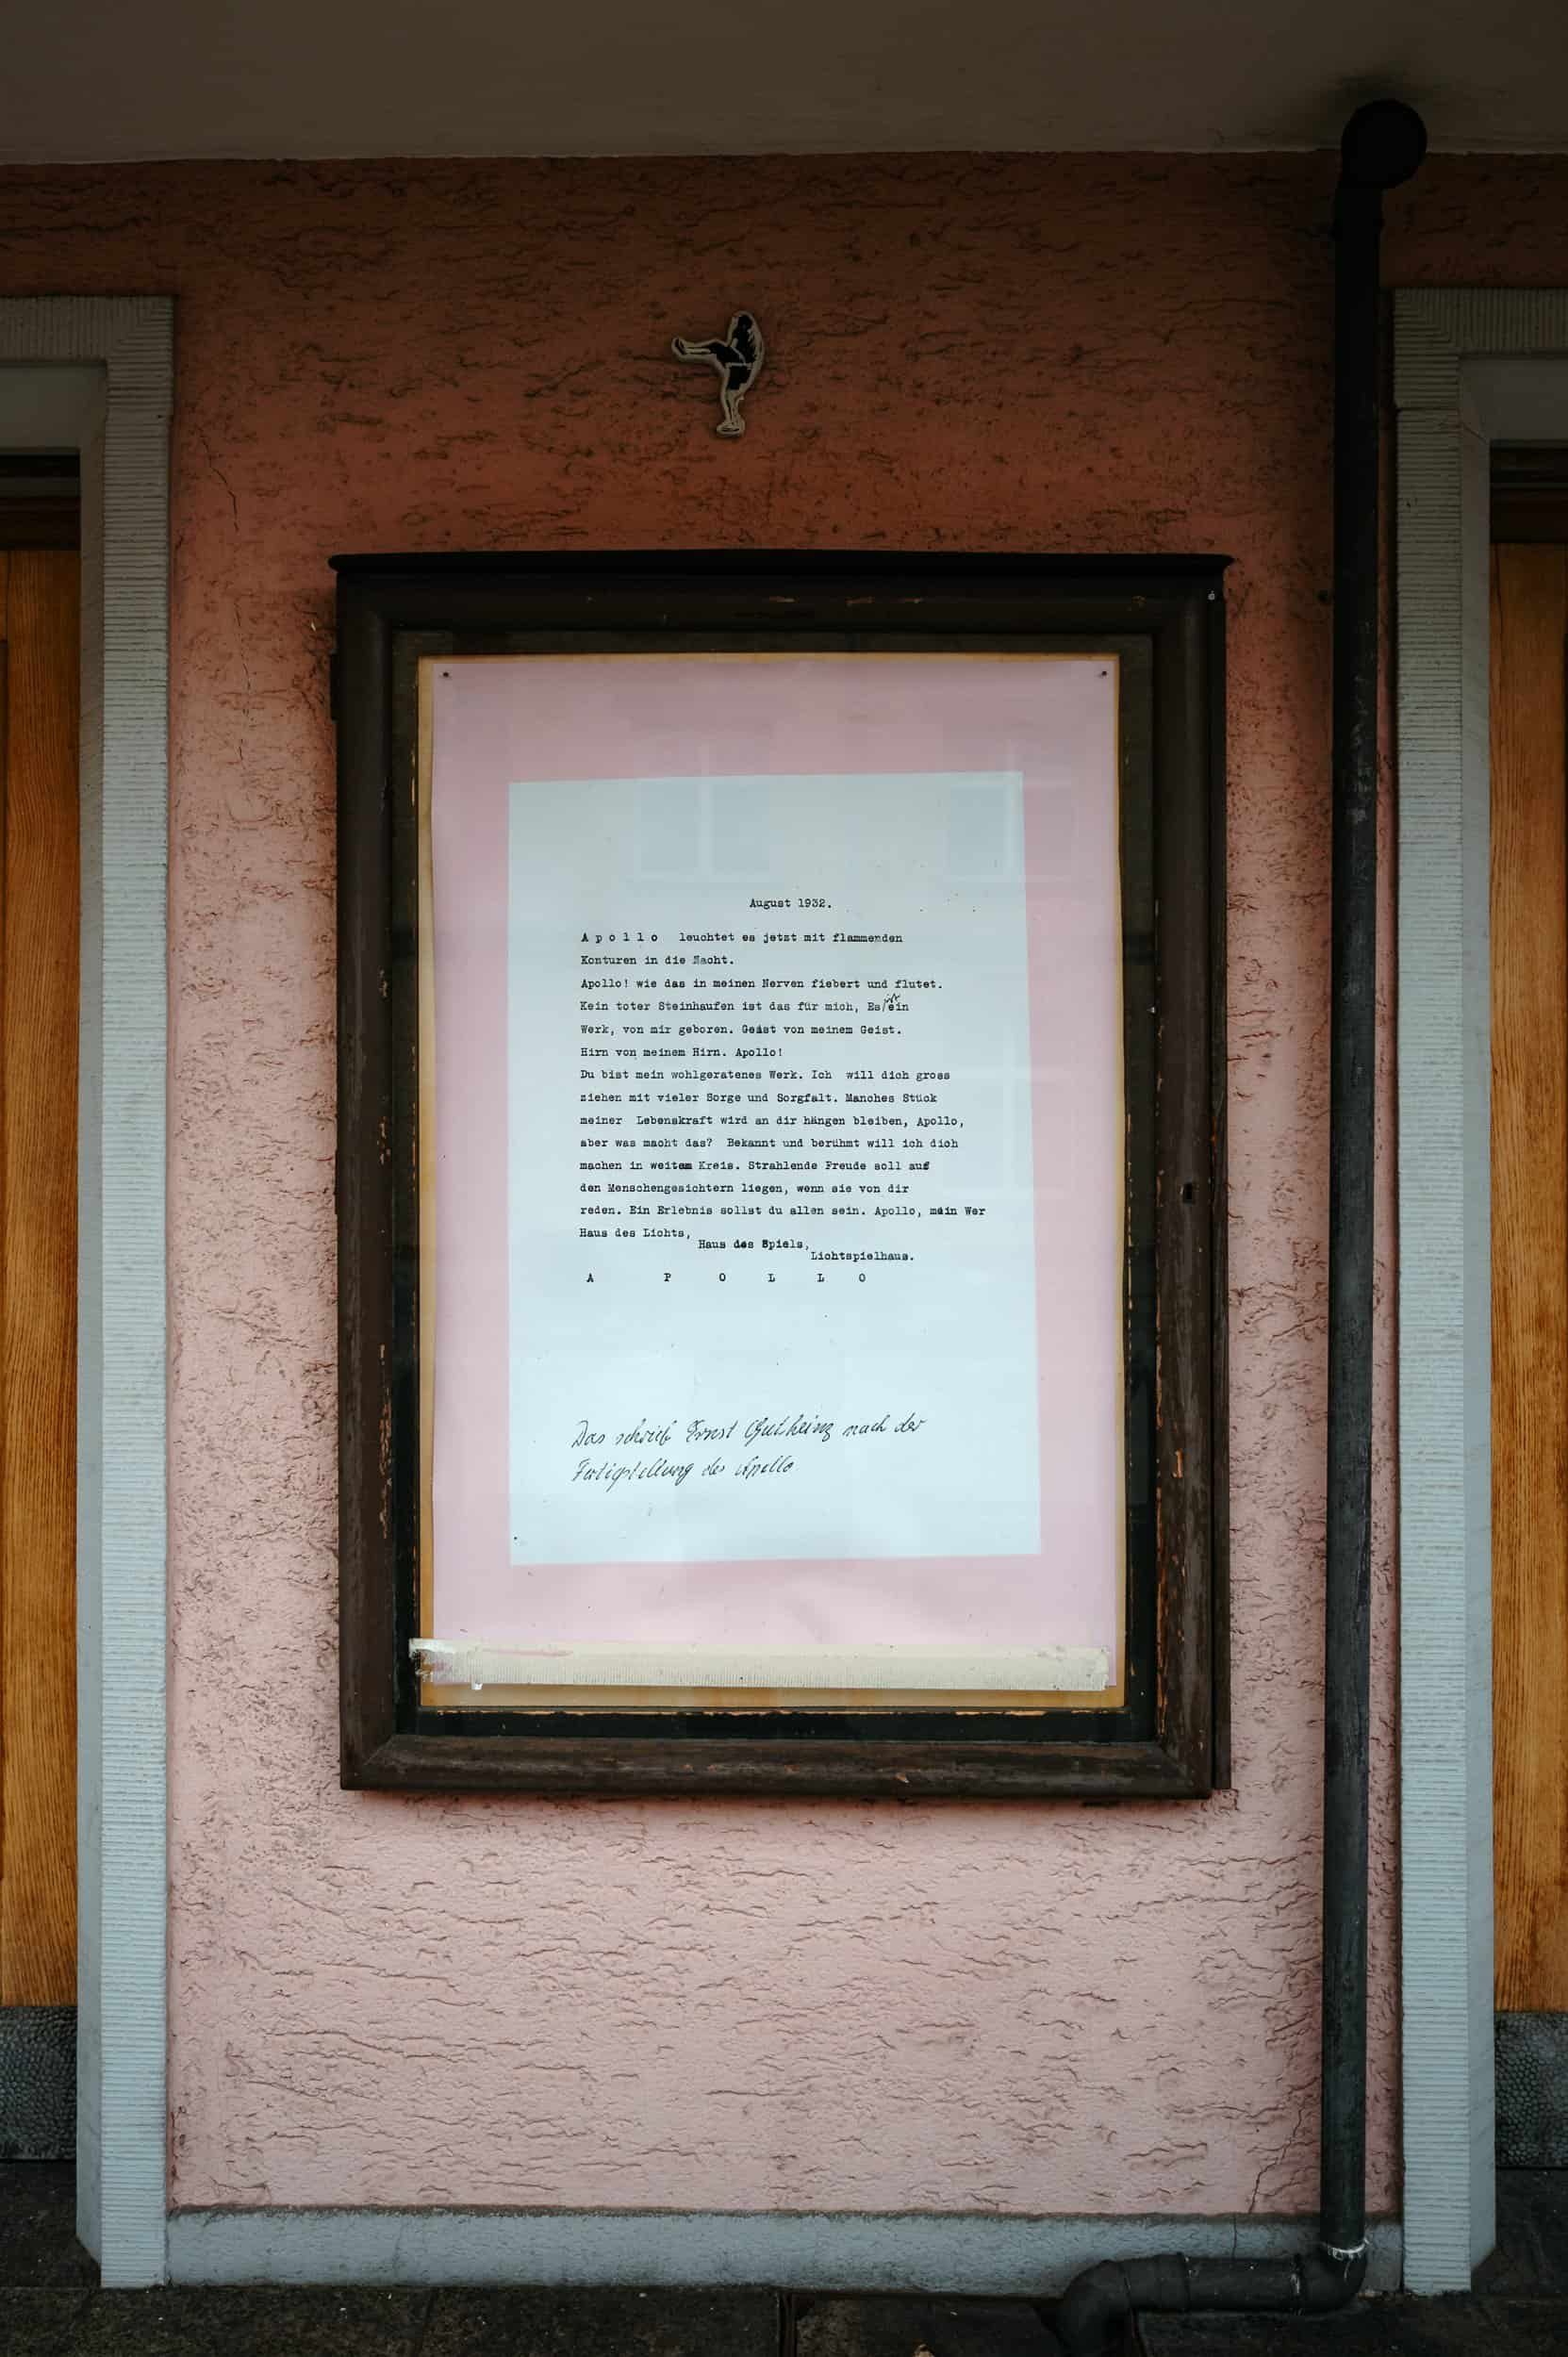 August 1932.
A p o l l o leuchtet es jetzt mit flammenden
Konturen in die Nacht.
Apollo! wie das in meinen Nerven fiebert und flutet.
Kein toter Steinhaufen ist das für mich, Es ist ein
Werk, von mir geboren. Geist von meinem Geist.
Hirn von meinem Hirn. Apollo!
Du bist mein wohlgeratenes Werk. Ich will dich gross
ziehen mit vieler Sorge und Sorgfalt. Manches Stück
meiner Lebenskraft wird an dir hängen bleiben, Apollo,
aber was macht das? Bekannt und berühmt will ich dich
machen in weitem Kreis. Strahlende Freude soll auf
den Menschengesichtern liegen, wenn sie von dir
reden. Ein Erlebnis sollst du allen sein. Apollo, mein Wer
Haus des Lichts,
Haus des Spiels,
Lichtspielhaus.
A P O L L O
Das schrieb Ernst Gutheinz nach der
Fertigstellung des Apollo